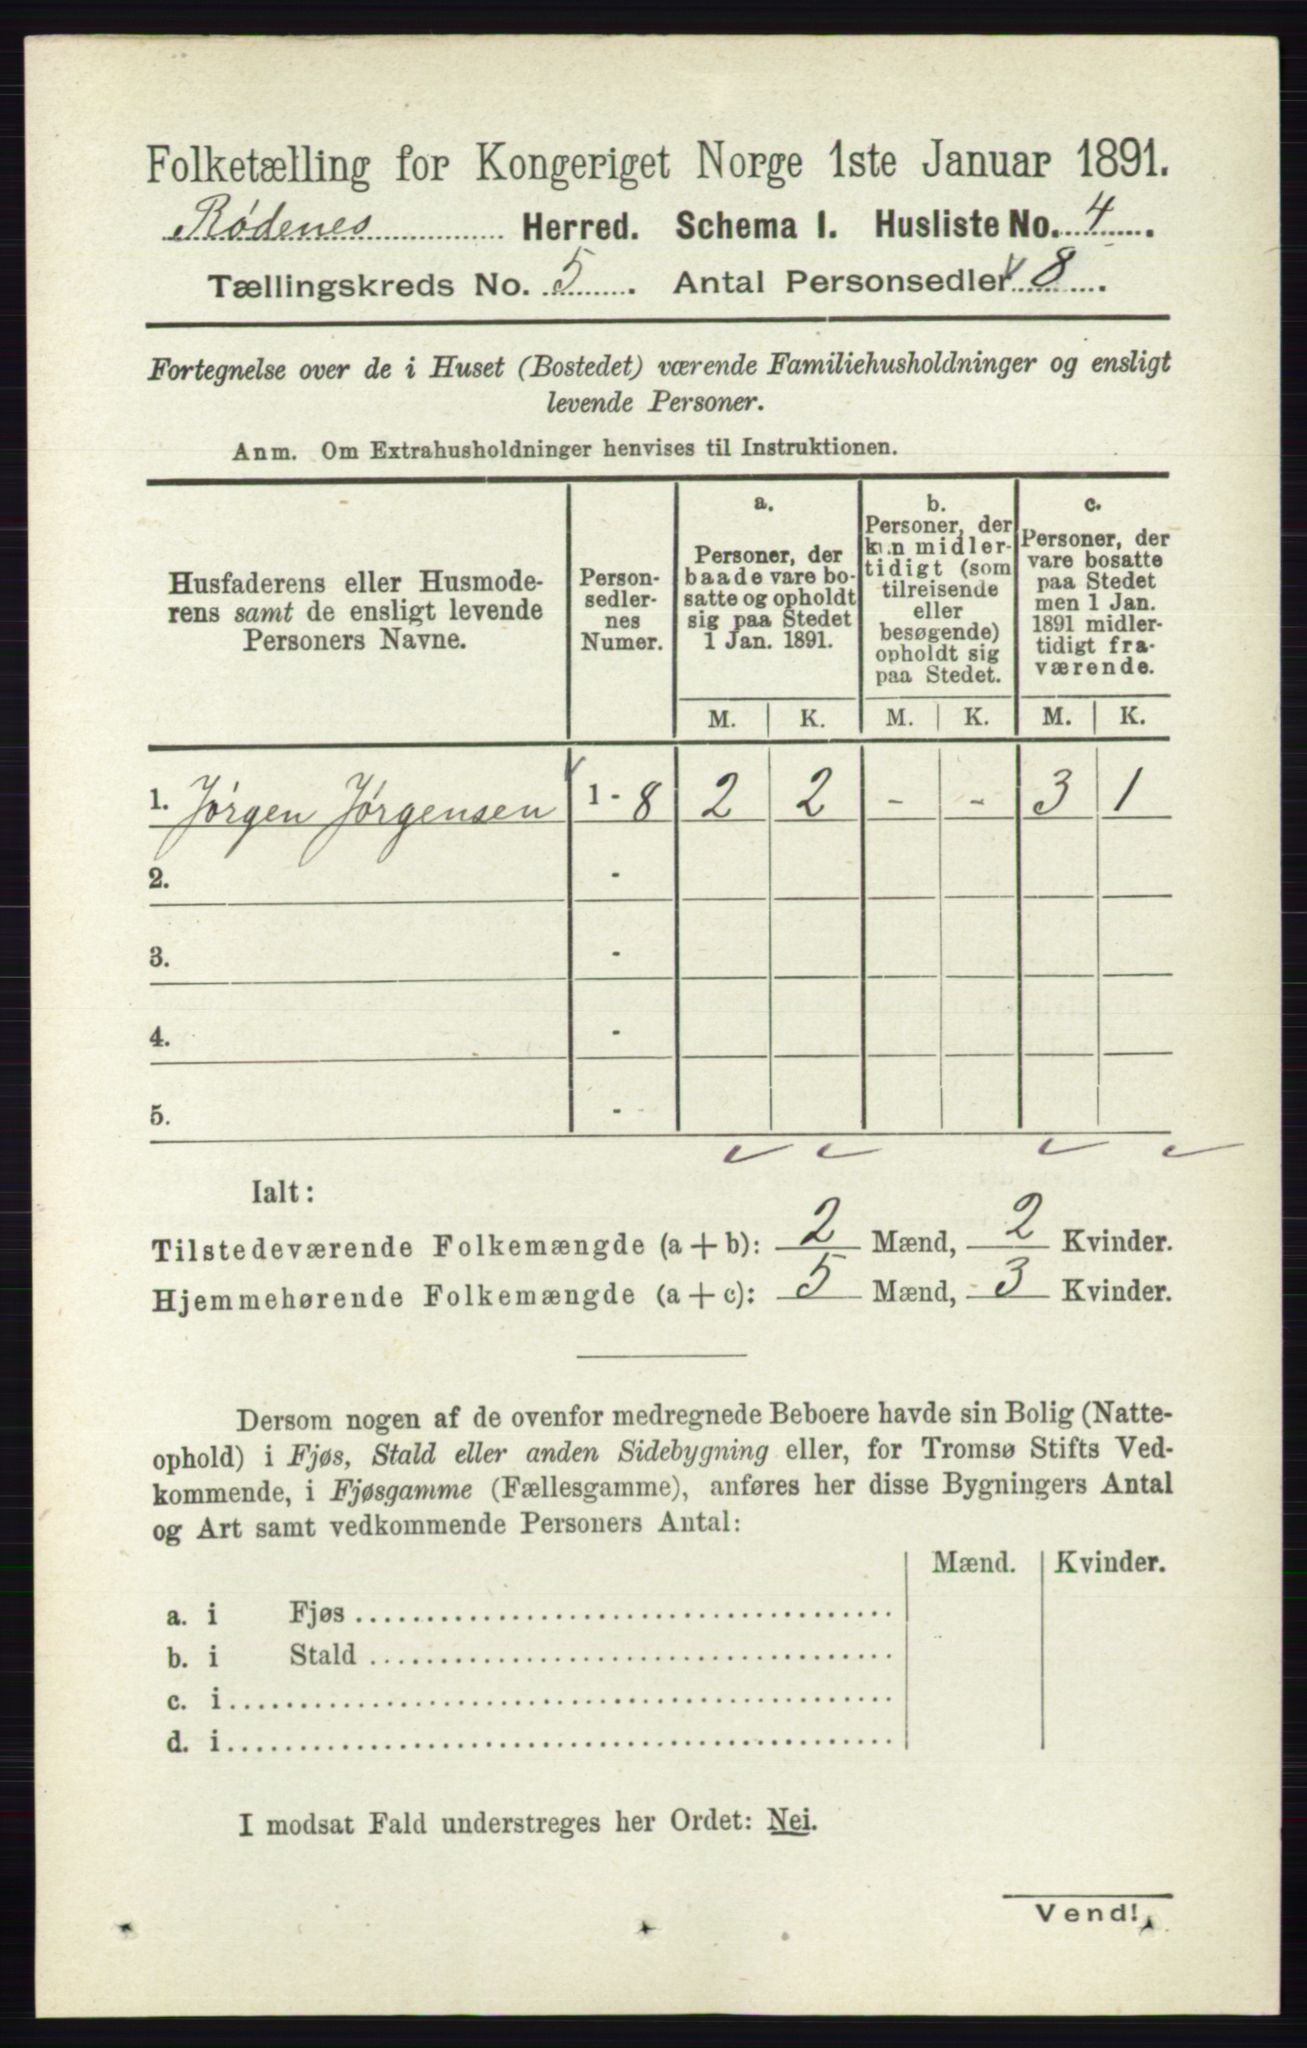 Folketælling for Kongeriget Norge 1ste Januar 1891.
Rødenes Herred. Schema I. Husliste No. 4.
Tællingskreds No. 5. Antal Personsedler 8.
Fortegnelse over de i Huset (Bostedet) værende Familiehusholdninger og ensligt
levende Personer.
Anm. Om Extrahusholdninger henvises til Instruktionen.
Husfaderens eller Husmode-
rens samt de ensligt levende
Personers Navne.
Person-
sedler-
nes
Numer.
a.
Personer, der
baade vare bo-
satte og opholdt
sig paa Stedet
1 Jan. 1891.
b.
Personer, der
kun midler-
tidigt (som
tilreisende
eller
besøgende)
opholdt sig
paa Stedet.
c.
Personer, der
vare bosatte
paa Stedet
men 1 Jan.
1891 midler-
tidigt fra-
værende.
M. K. M. K. M. K.
1. Jørgen Jørgensen 1 - 8 2 2 - - 3 1
2. -
3. -
4. -
5. -
Ialt:
Tilstedeværende Folkemængde (a + b): 2 Mænd, 2 Kvinder.
Hjemmehørende Folkemængde (a + c): 5 Mænd, 3 Kvinder.
Dersom nogen af de ovenfor medregnede Beboere havde sin Bolig (Natte-
ophold) i Fjøs, Stald eller anden Sidebygning eller, for Tromsø Stifts Ved-
kommende, i Fjøsgamme (Fællesgamme), anføres her disse Bygningers Antal
og Art samt vedkommende Personers Antal:
Mænd. Kvinder.
a. i Fjøs
b. i Stald
c. i
d. i
I modsat Fald understreges her Ordet: Nei.
Vend!